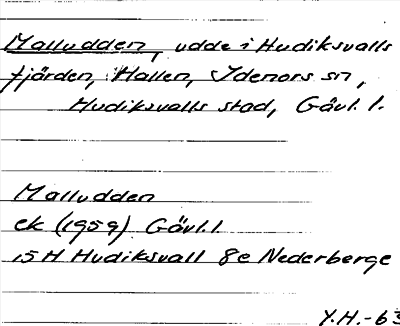 Malludden, udde i Hudiksvalls
fjärden, Hallen, Idenors sn,
Hudiksvalls stad, Gävl. l.
Malludden
ek (1959) Gävl.l
15H Hudiksvall 8e Nederberge
Y.H.-63